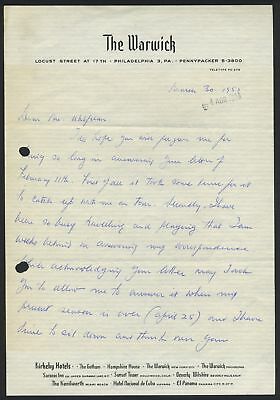 The Warwick
LOCUST STREET AT 17TH · PHILADELPHIA 3, PA. · PENNYPACKER 5-3800
TELETYPE PH
March 30 195
Dear Mr.
I do hope you will forgive me for
being so long in answering your letter of
February 11th. First of all it took some time for it
to catch up with me on tour. Secondly I have
been so busy travelling and playing that I am
weeks behind in answering my correspondence
acknowledging your letter may I ask
you to allow me to answer it when my
present season is over (April 25) and I have
time to sit down and think over your
Kirkeby Hotels · The Gotham · Hampshire House · The Warwick NEW YORK CITY · The Warwick PHILADELPHIA
Saranac Inn ON UPPER SARANAC LAKE N.Y. · Sunset Tower HOLLYWOOD · Beverly Wilshire BEVERLY HILLS
The Kenilworth MIAMI BEACH · Hotel Nacional de Cuba HAVANA · El Panama PANAMA CITY R. OF P.